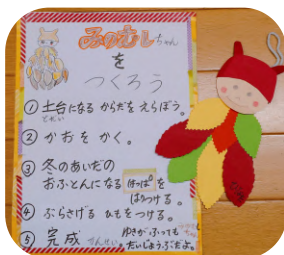 みのむしちゃん
を
つくろう
① 土台になる からだを えらぼう。
どだい
② かおを かく。
③ 冬のあいだの
おふとんになる はっぱ を
はりつける。
④ ぶらさげる ひもをつける。
⑤ 完成
かんせい
ゆきが ふっても
だいじょうぶだよ。